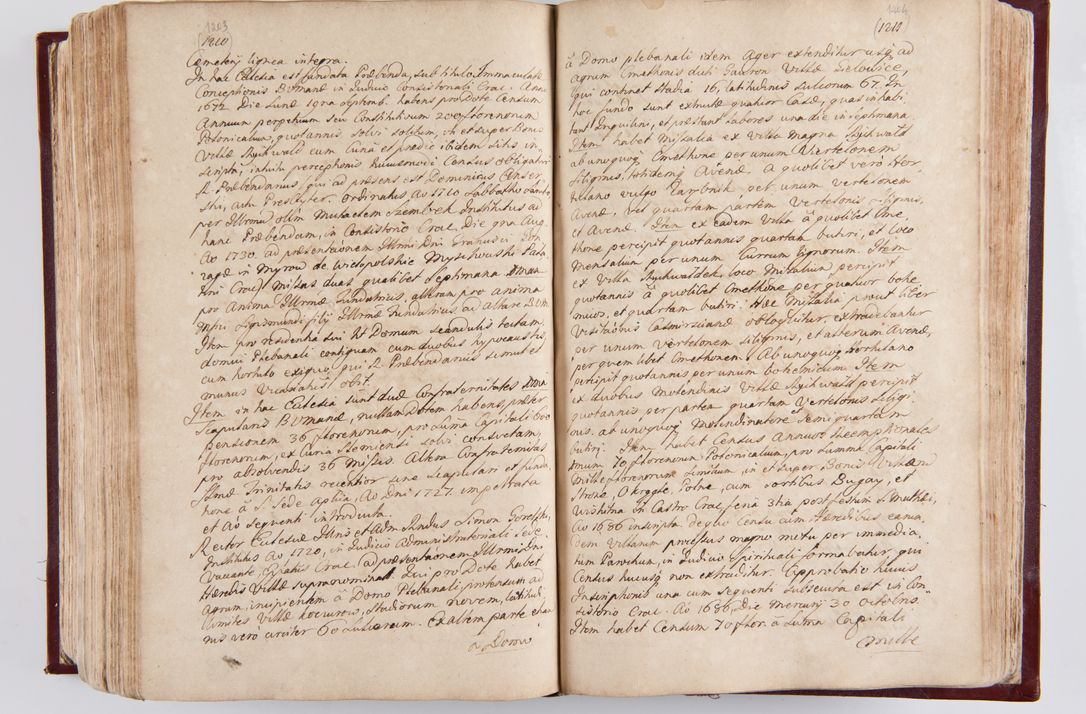 1203
1210
Cæmeterij lignea integra.
In hac Ecclesia est fundata Præbenda, sub titulo Immaculatæ
Conceptionis BVMariæ in Judicio Consistoriali Crac. Anno
1672. Die Lunæ 19na Septemb. habens pro Dote Censum
Annuum perpetuum seu Constitutivum 200 florenorum
Polonicalium, quotannis solvi solitum, in et super Bonis
Villæ Szyikwald cum Curia et prædio ibidem sitis in-
scripta, intuitu perceptionis huiusmodi Census obligatur
A. Præbendarius, qui ad præsens est Dominicus Censer
ski, actu Presbyter, ordinatus Ao 1720 Sabbatho sancto,
per Illrmum olim Michaelem Szembek Institutus ad
hanc Præbendam, in Consistorio Crac. Die 9na Aug
Ao 1730. ad præsentaonem Illrmi Dni Francisci Gon
zagæ in Myrow de Wielopolskie Myszkowski Pala
tini Crac. Missas duas qualibet septimana
pro Anima Illrmæ fundatricis, alteram pro anima
Mfci Sigismundi filij Illrmæ fundatricis ad altare BVM.
Item pro residentia dni Domum scandulis tectam,
domui Plebanali contiguam cum duobus hypocaustis,
cum hortulo exiguo, qui A. Præbendarius simul et
munus Vicariatus obit.
Item in hac Ecclesia sunt duæ Confraternitates
Scapularis BVMariæ, nullam Dotem habens, præter
pensionem 36 florenorum, pro summa Capitali 600
florenorum, ex Curia Siemiensi solvi consuetam,
pro absolvendis 36 Missis. Altera Confraternitas
SSmæ Trinitatis recentior sine scapulari et funda
tione à S. Sede Aplica, Ao Dni 1727. impetrata
et Ao sequenti introducta.
Rector Ecclesiæ Illris et Adm. Rndus Simon Gorelski,
Institutus Ao 1720, in Judicio Administratoriali Sede
Vacante, Epatus Crac. ad præsentaonem Illrmi Dni
Hæredis Villæ supranominatæ. Qui pro Dote habet
Agrum, incipientem à Domo Plebanali, protensum ad
limites Villæ Rockowiec, stadiorum novem, latitudi
nis vero circiter 60 sulcorum. Ex altera parte etiam
a Domo
1204
1211
à Domo plebanali idem Ager extenditur usq ad
agrum Cmethonis dicti Gawron Villæ Sietowice,
qui continet stadia 16, latitudinis sulcorum 67. In
hoc fundo sunt extructæ quatuor Casæ, quas inhabi
tant Inquilini, et præstant labores una die in septimana.
Item habet Missalia ex villa magna Szyikwald
ab unoquoq Cmethone per unum Viertelonem
siliginis, totidemq Avenæ, à quolibet verò Hor
tulano vulgo Zarbnik per unum Vertelonem
Avenæ, vel quartam partem Vertelonis siliginis,
et Avenæ. Item ex eadem Villa à quolibet Cme,,
thone percipit quotannis quartam butiri, et loco
mensalium per unum currum lignorum. Item
ex Villa Szyikwaldek loco Missalium percipit
quotannis à quolibet Cmethone per quatuor bohe
micos, et quartam butiri. Hæc Missalia prout liber
Visitaonis Casimirsciana obloquitur, extradebantur
per unum Vertelonem siliginis, et alterum Avenæ,
per quemlibet Cmethonem. Ab unoquoq Hortulano
percipit quotannis per unum bohemicum. Item
ex duobus Molendinis Villæ Szyikwald percipit
quotannis per partem quartam Vertelonis siligi
nis ab unoquoq Molendinatore et semiquartam
butiri. Item habet Census Annuos reemptionales
Imum 70 florenorum Polonicalium, pro summa Capitali
Mille florenorum similium, in et super Bonis
Strone, Okregle, Polne, cum sortibus Dugay, et
Wislitna in Castro Crac. feria 3tia post festum S. Mathæi,
Ao 1636 inscripta. De quo Censu cum Hæredibus earun
dem Villarum processus magno motu per immedia,,
tum Parochum, in Judicio Spirituali formabatur, qui
Census hucusq non extraditur. Approbatio huius
Inscriptionis una cum sequenti subsecuta est in Con
sistorio Crac. Ao 1636, Die Mercurij 30 Octobris.
Item habet Censum 70 flor. à suma Capitali
mille